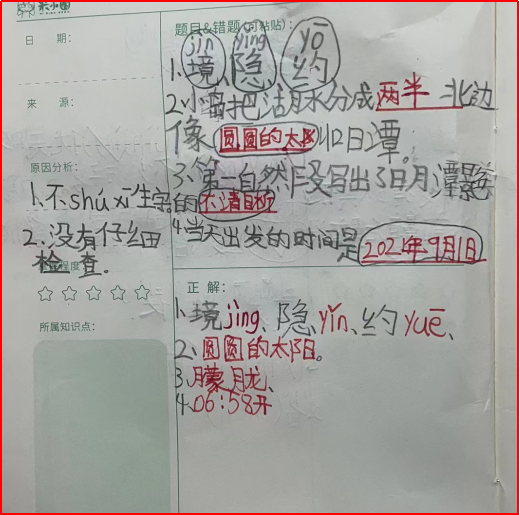 米小圈
日 期：
题目&错题(可粘贴)：
jìn yǐng yō
1、境 隐 约
2、小岛把湖水分成两半 北边
来 源：
像圆圆的太阳 叫日潭。
原因分析：
3、第一自然段写出了日月潭
的不清晰
1、不shúxī生字
4、当天出发的时间是2021年9月1日
2、没有仔细
检查。
程度
所属知识点：
正 解：
1、境jìng、隐yǐn、约yuē、
2、圆圆的太阳。
3、朦胧、
4、06:58开